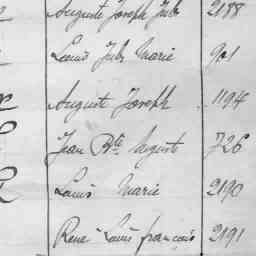 Auguste Joseph Jules 2188
Louis Jules Marie 901
Auguste Joseph 1194
Jean Bte Auguste 726
Louis Marie 2190
René Louis françois 2191